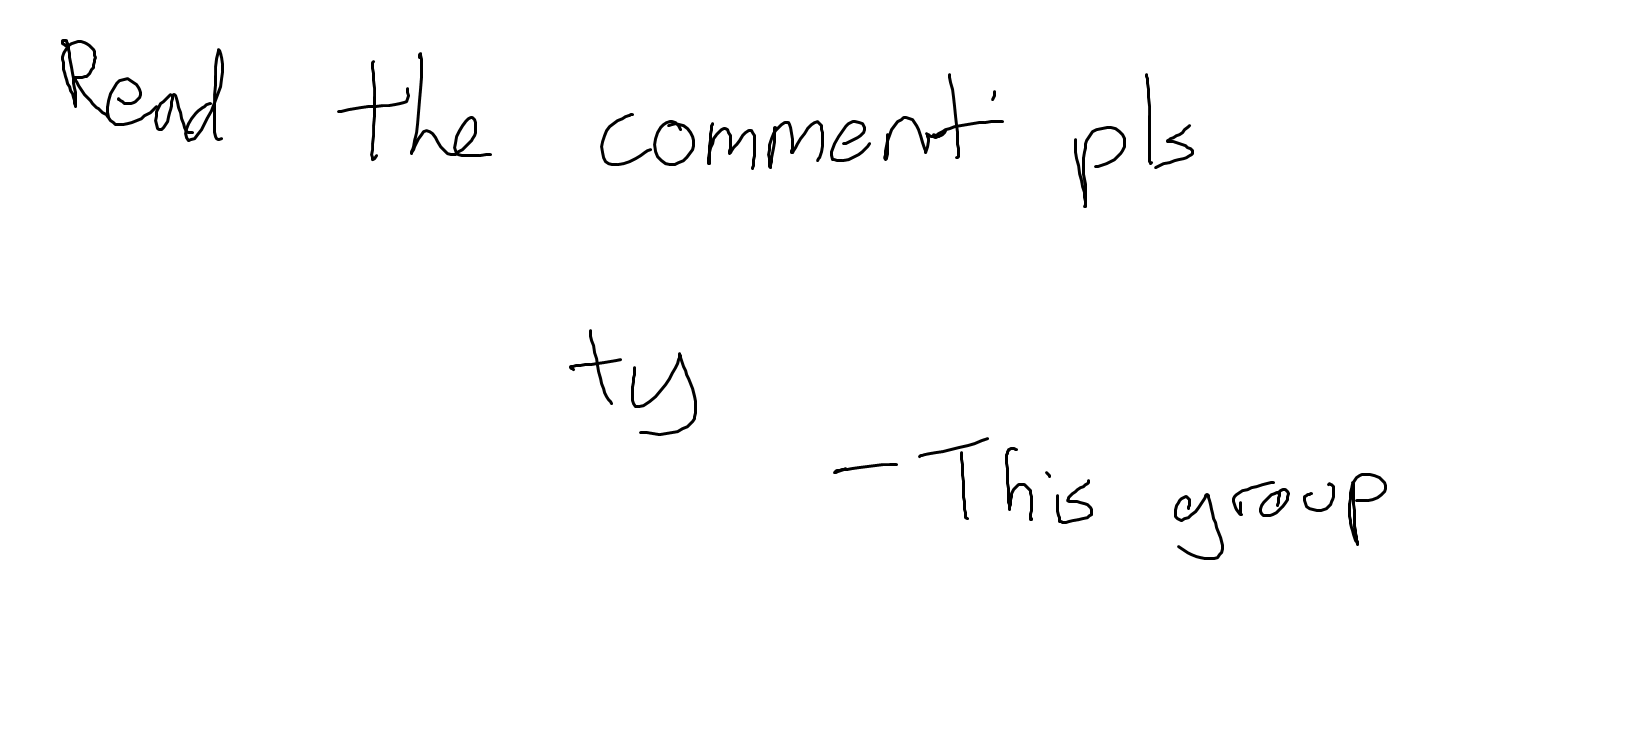 Read the comment pls
ty
- This group